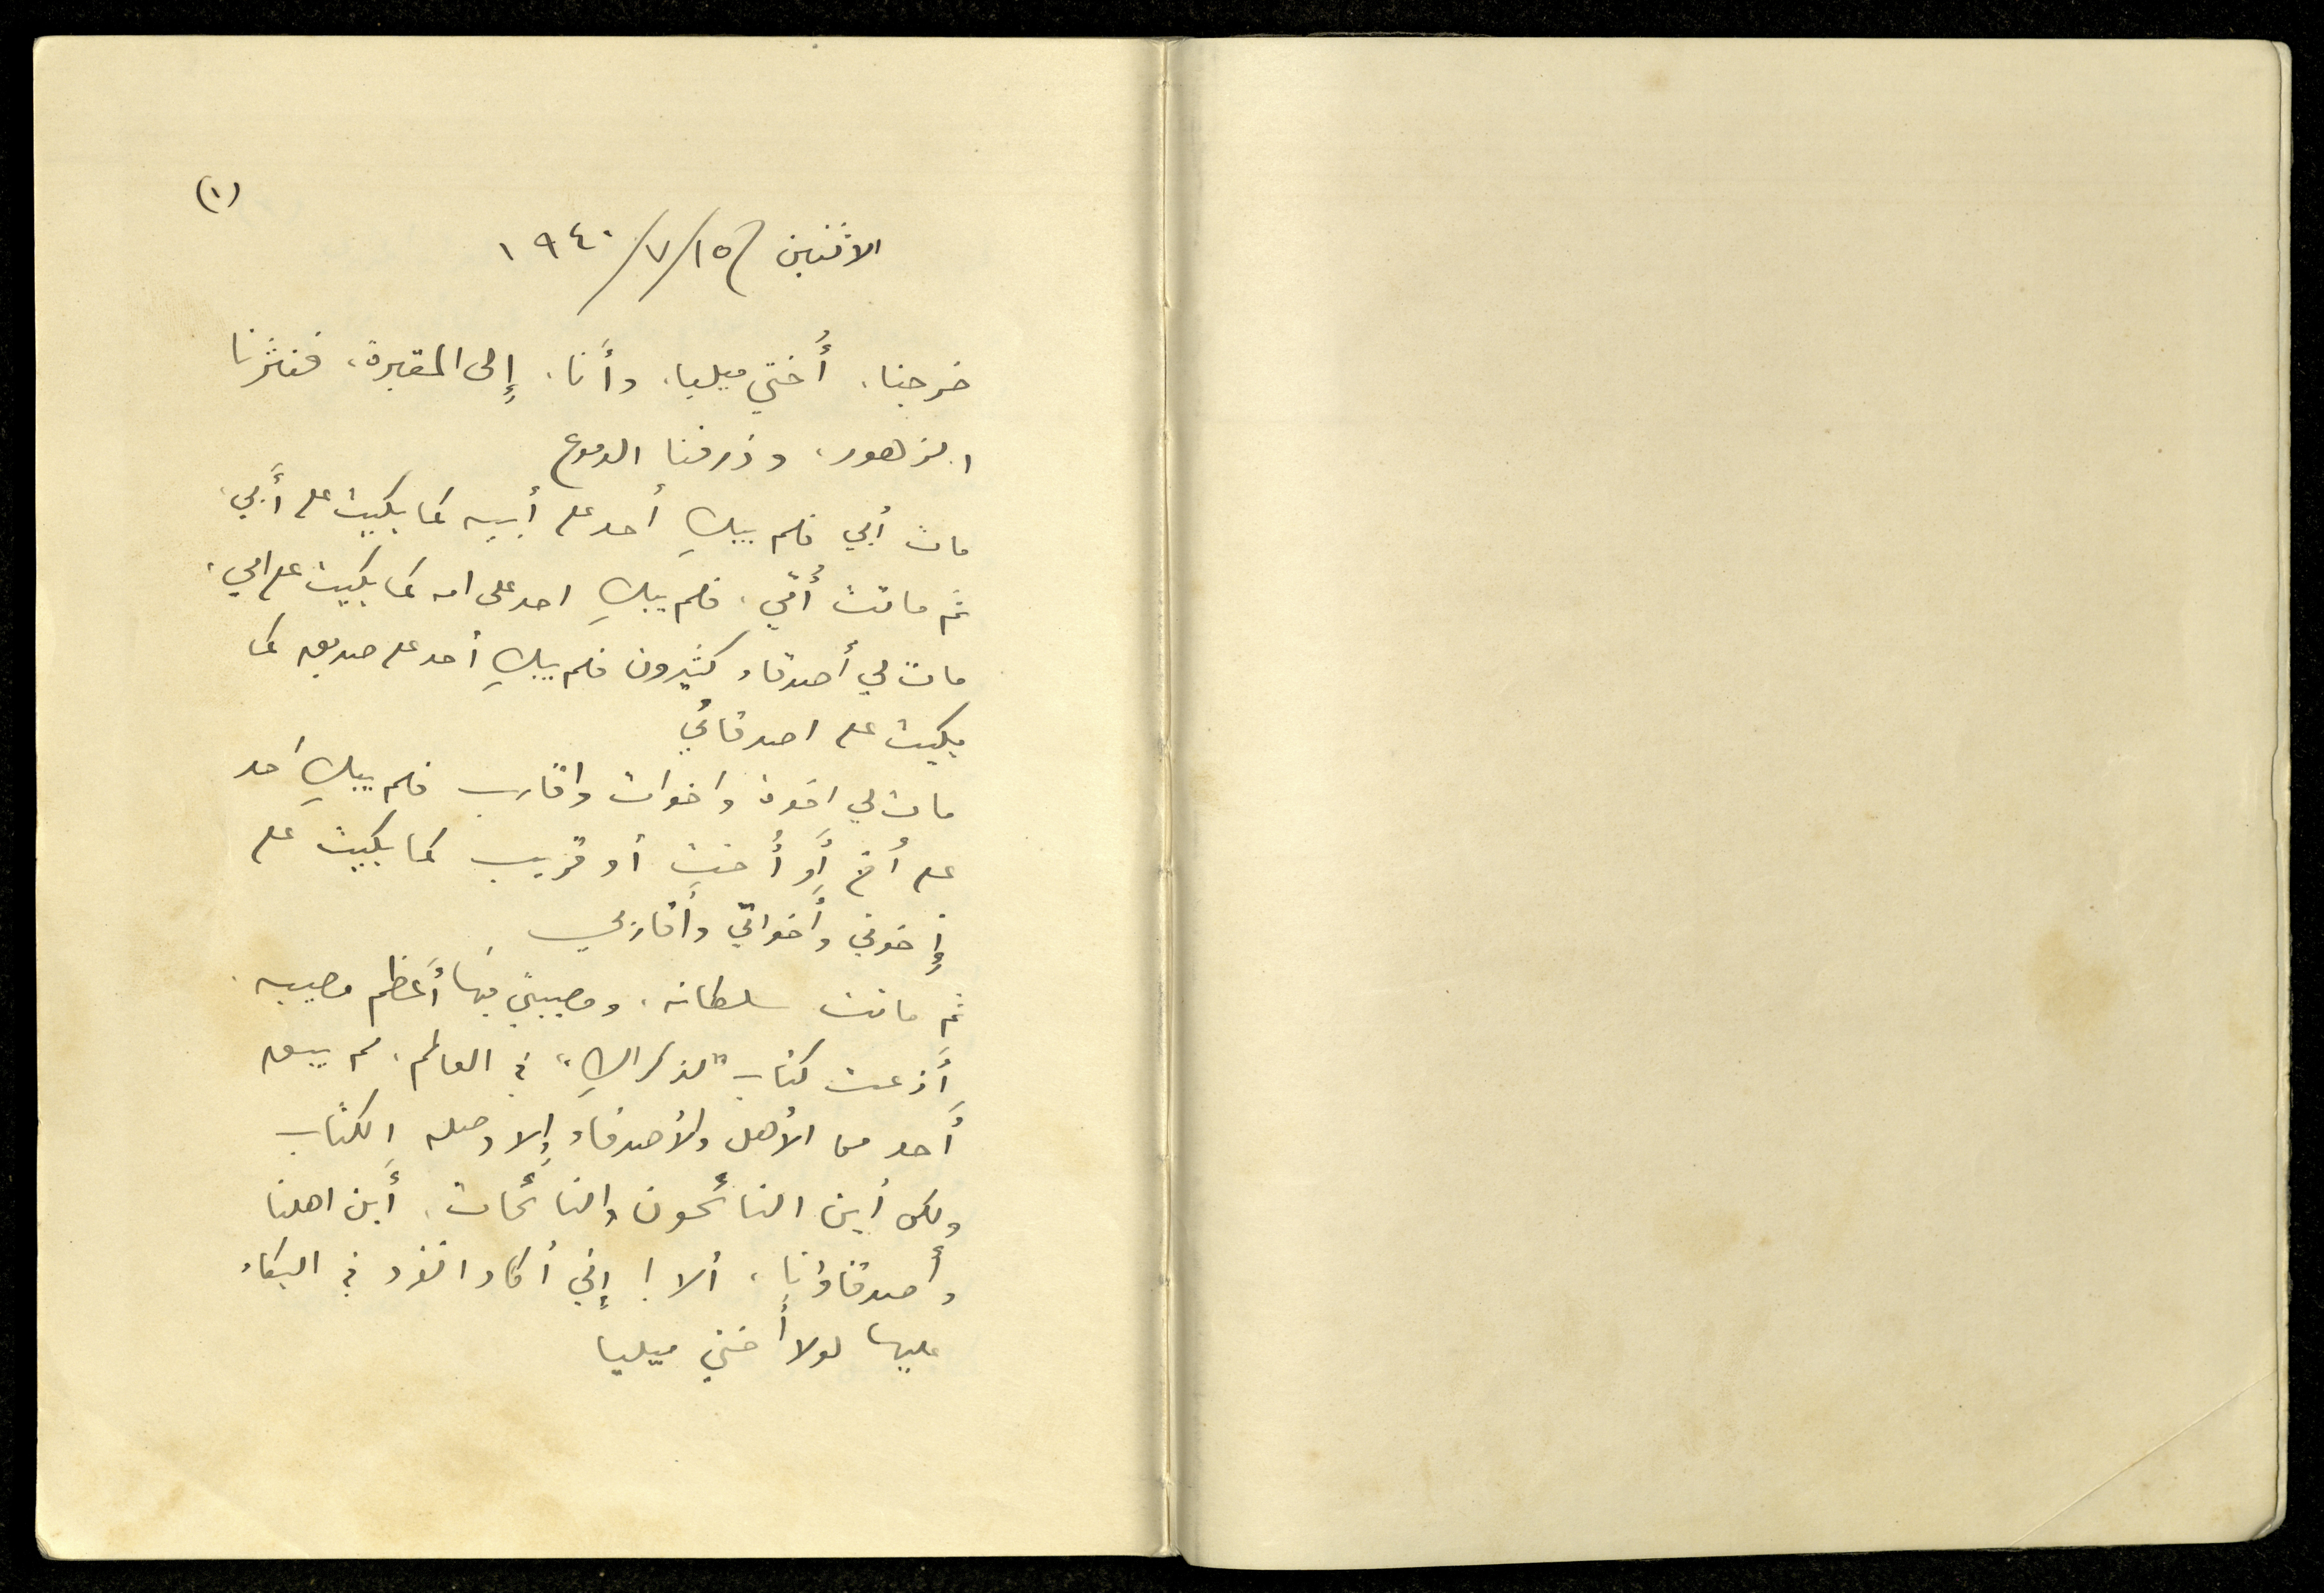 (١)
الاثنين ١٥/٧/١٩٤٠
خرجنا، أُختي ميليا، وأَنا، إِلى المقبرة، فنثَرنا
الزهور، وذرفنا الدموع
مات أبي فلم يبكِ أحد على أبيه كما بكيت على أَبي،
ثم ماتت أُمّي، فلم يبكِ احد على امه كما بكيت على امي،
مات لي أصدقاء كثيرون فلم يبكِ أحد على صديقه كما
بكيت على اصدقائي
مات لي اخوة واخوات واقارب فلم يبكِ أحد
على أخ أَو أُخت أو قريب كما بكيت على
إِخوتي وأَخواتي وأَقاربي
ثم ماتت سلطانه، ومصيبتي فيها أَعظم مصيبه.
أَذعت كتاب "لذكراكِ" في العالم، لم يبق
أَحد من الأهل والأصدقاء إِلا وصله الكتاب
ولكن أين النائحون والنائحات، أَين اهلنا
وأصدقاؤنا، ألا! إِني أكاد انفرد في البكاء
عليها لولا أختي ميليا